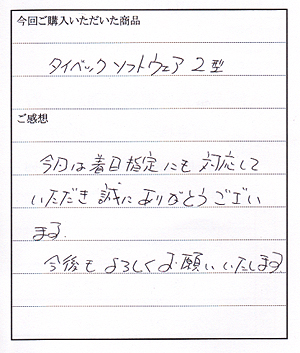 今回ご購入いただいた商品
タイベックソフトウェア 2型
ご感想
今回は着日指定にも対応して
いただき誠にありがとうござい
ます.
今後もよろしくお願いいたします